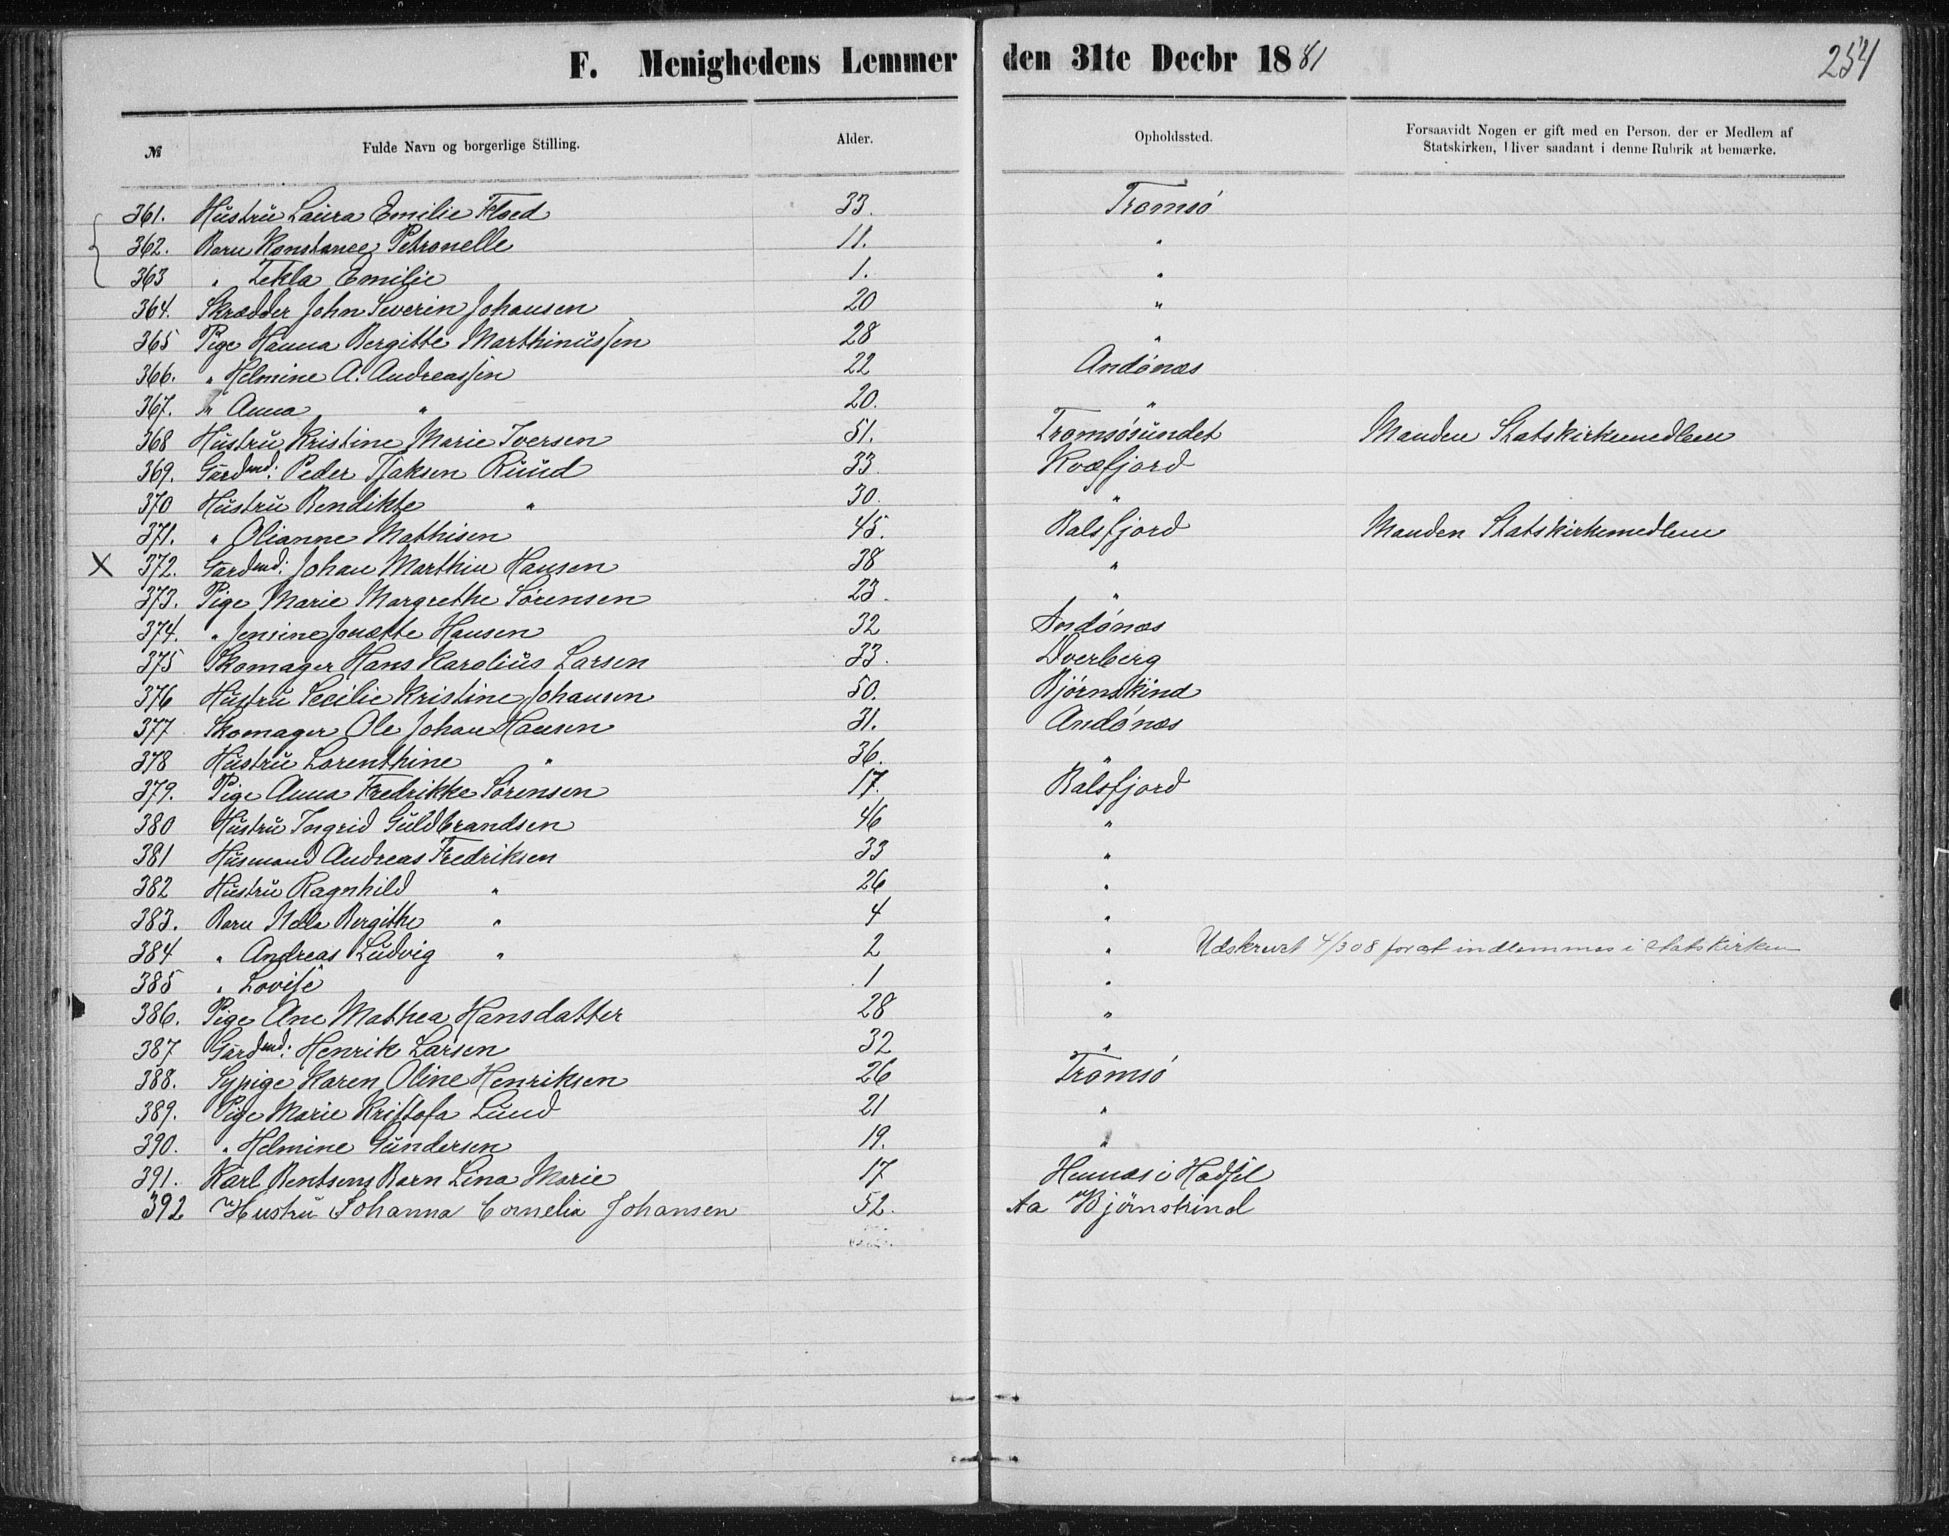 F. Menighedens Lemmer den 31te Decbr 1881 254
№ Fulde Navn og borgerlige Stilling. Alder. Opholdssted. Forsaavidt Nogen er gift med en Person, der er Medlem af Statskirken, bliver saadant i denne Rubrik at bemærke.
361. Hustru Laura Emilie Floed 33. Tromsö
362. Barn Konstance Petronelle 11. "
363 " Tekla Emilie 1. "
364. Skrædder John Severin Johansen 20 "
365 Pige Hanna Bergitte Marthinussen 28 "
366. " Helmine A. Andreassen 22 Andönæs
367. " Anna " 20. "
368 Hustru Kristine Marie Iversen 51. Tromsösundet Manden Statskirkemedlem
369. Gårdmd: Peder Isaksen Ruud 33 Kvæfjord
370 Hustru Bendikte " 30. "
371. " Olianne Mathisen 45. Balsfjord Manden Statskirkemedlem
X 372. Gårdmd: Johan Marthin Hansen 38 "
373. Pige Marie Margrethe Sörensen 23. "
374. " Jensine Jonette Hansen 32 Andönæs
375 Skomager Hans Karolius Larsen 33. Dverberg
376 Hustru Cecilie Kristine Johansen 50. Bjørnskind
377 Skomager Ole Johan Hansen 31. Andönæs
378 Hustru Lorenthine " 36. "
379. Pige Anna Fredrikke Sörensen 17. Balsfjord
380 Hustru Ingrid Guldbrandsen 46 "
381 Husmand Andreas Fredriksen 33 "
382 Hustru Ragnhild " 26 "
383. Barn Bergithe " 4 "
384 " Andreas Ludvig " 2 " Udskrevet 4/3 08 for at indlemmes i statskirken
385 " Lovise 1 "
386. Pige Ane Mathea Hansdatter 28 "
387 Gårdmd: Henrik Larsen 32 "
388. Sypige Karen Oline Henriksen 26 Tromsö
389. Pige Marie Kristofa Lund 21 "
390. " Helmine Gundersen 19. "
391. Karl Bentsens Barn Lina Marie 17 Hennæs i Hadsel
392 Hustru Johanna Cornelia Johansen 52. Aa Bjørnskind